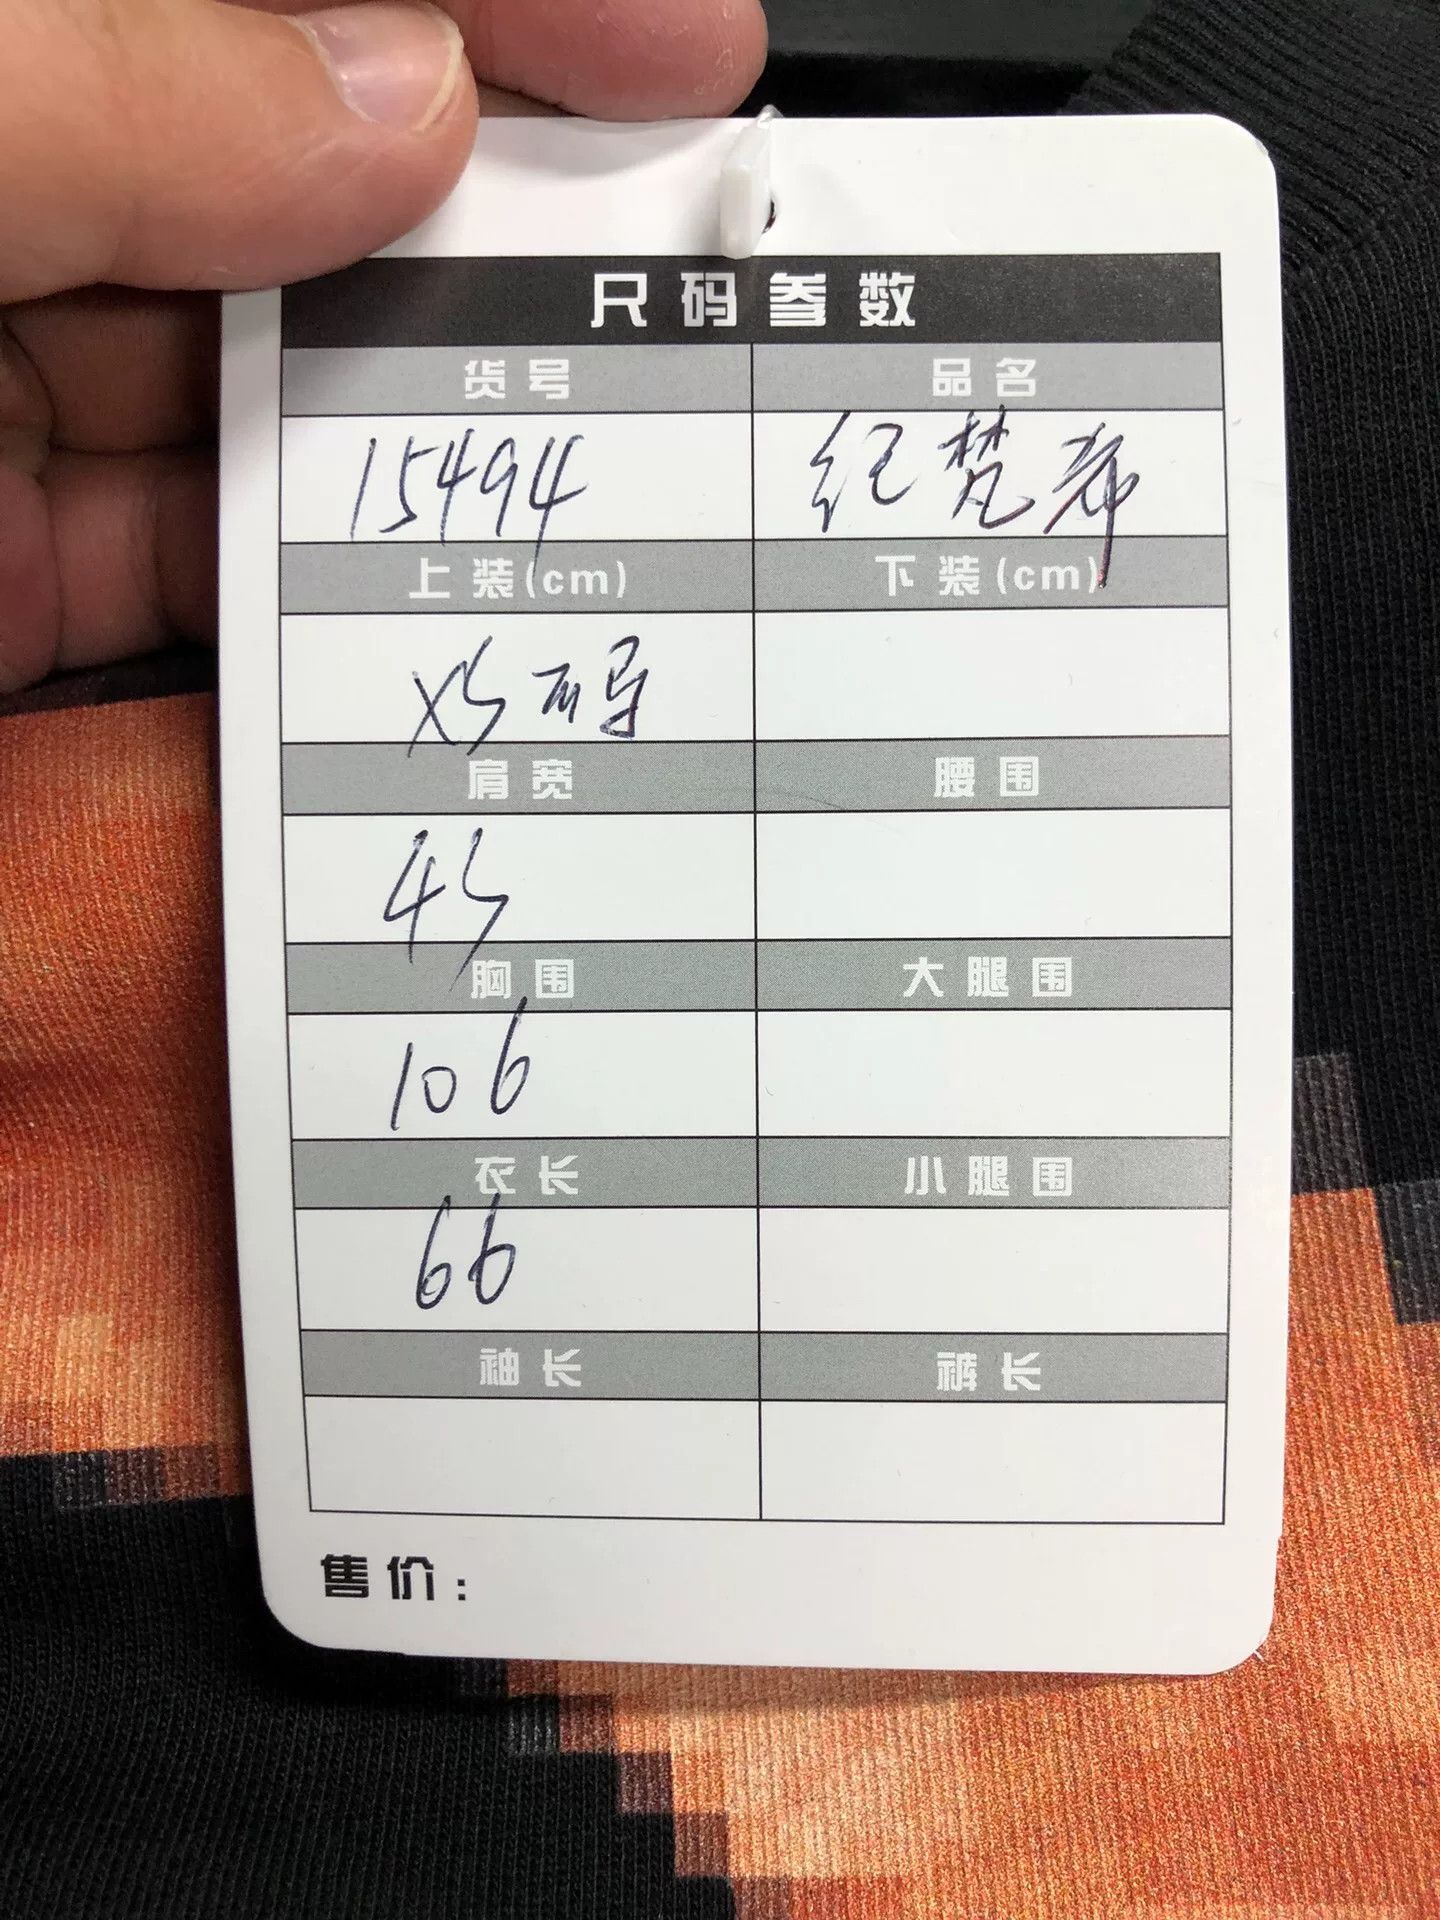 尺码参数
货号 品名
15494 纪梵希
上装(cm) 下装(cm)
XS码
肩宽 腰围
45
胸围 大腿围
106
衣长 小腿围
66
袖长 裤长
售价：